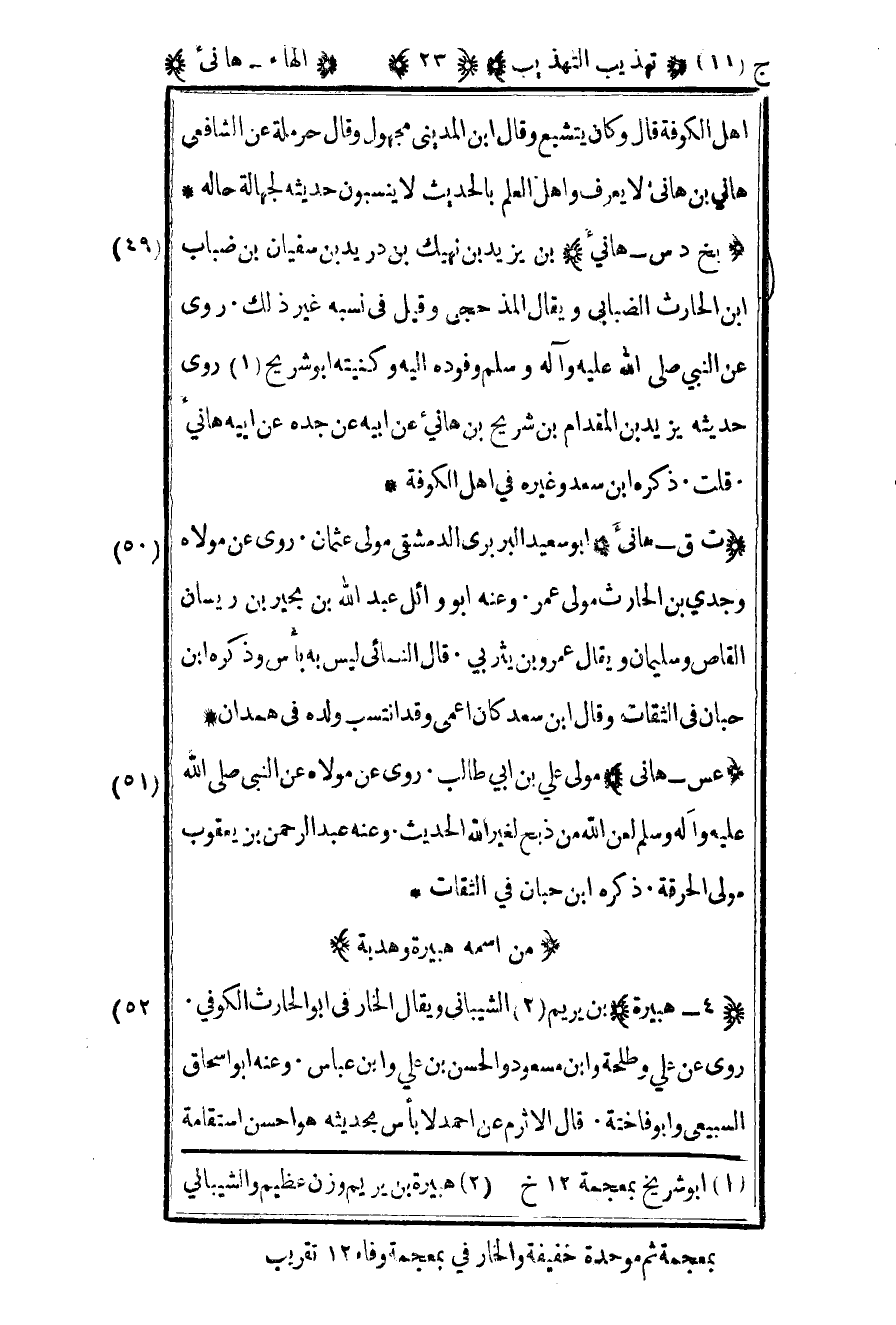 ج (١١) ﴿ تهذيب التهذيب ﴾ ﴿ ٢٣ ﴾ ﴿ الهاء ـ هانئ ﴾
اهل الكوفة قال وكان يتشيع وقال ابن المدينى مجهول وقال حرملة عن الشافعي
هاني بن هانئ لا يعرف واهل العلم بالحديث لا ينسبون حديثه لجهالة حاله *
﴿ بخ د س ـ هانئ ﴾ بن يزيد بن نهيك بن دريد بن سفيان بن ضباب (٤٩)
ابن الحارث الضبابي ويقال المذحجى وقيل فى نسبه غير ذلك · روى
عن النبي صلى الله عليه وآله وسلم وفوده اليه وكنيته ابو شريح (١) روى
حديثه يزيد بن المقدام بن شريح بن هانئ عن ابيه عن جده عن ابيه هانئ
· قلت · ذكره ابن سعد وغيره في اهل الكوفة *
﴿ ت ق ـ هانئ ﴾ ابو سعيد البربرى الدمشقى مولى عثمان · روى عن مولاه (٥٠)
وجدي بن الحارث مولى عمر · وعنه ابو وائل عبد الله بن بحير بن ريسان
القاص وسليمان ويقال عمرو بن يثربي · قال النسائى ليس به بأس وذكره ابن
حبان فى الثقات وقال ابن سعد كان اعمى وقد انتسب ولده فى همدان *
﴿ عس ـ هانى ﴾ مولى علي بن ابي طالب · روى عن مولاه عن النبى صلى الله (٥١)
عليه وآله وسلم لعن الله من ذبح لغير الله الحديث · وعنه عبد الرحمن بن يعقوب
مولى الحرقة · ذكره ابن حبان في الثقات *
﴿ من اسمه هبيرة وهدبة ﴾
﴿ ٤ ـ هبيرة ﴾ بن يريم (٢) الشيبانى ويقال الخارفى ابو الحارث الكوفي · (٥٢
روى عن علي وطلحة وابن مسعود والحسن بن علي وابن عباس · وعنه ابو اسحاق
السبيعى وابو فاختة · قال الاثرم عن احمد لا بأس بحديثه هو احسن استقامة
(١) ابو شريح بمعجمة ١٢ خ (٢) هبيرة بن يريم وزن عظيم والشيبالي
بمعجمة ثم موحدة خفيفة والخارفي بمعجمة وفاء ١٢ تقريب